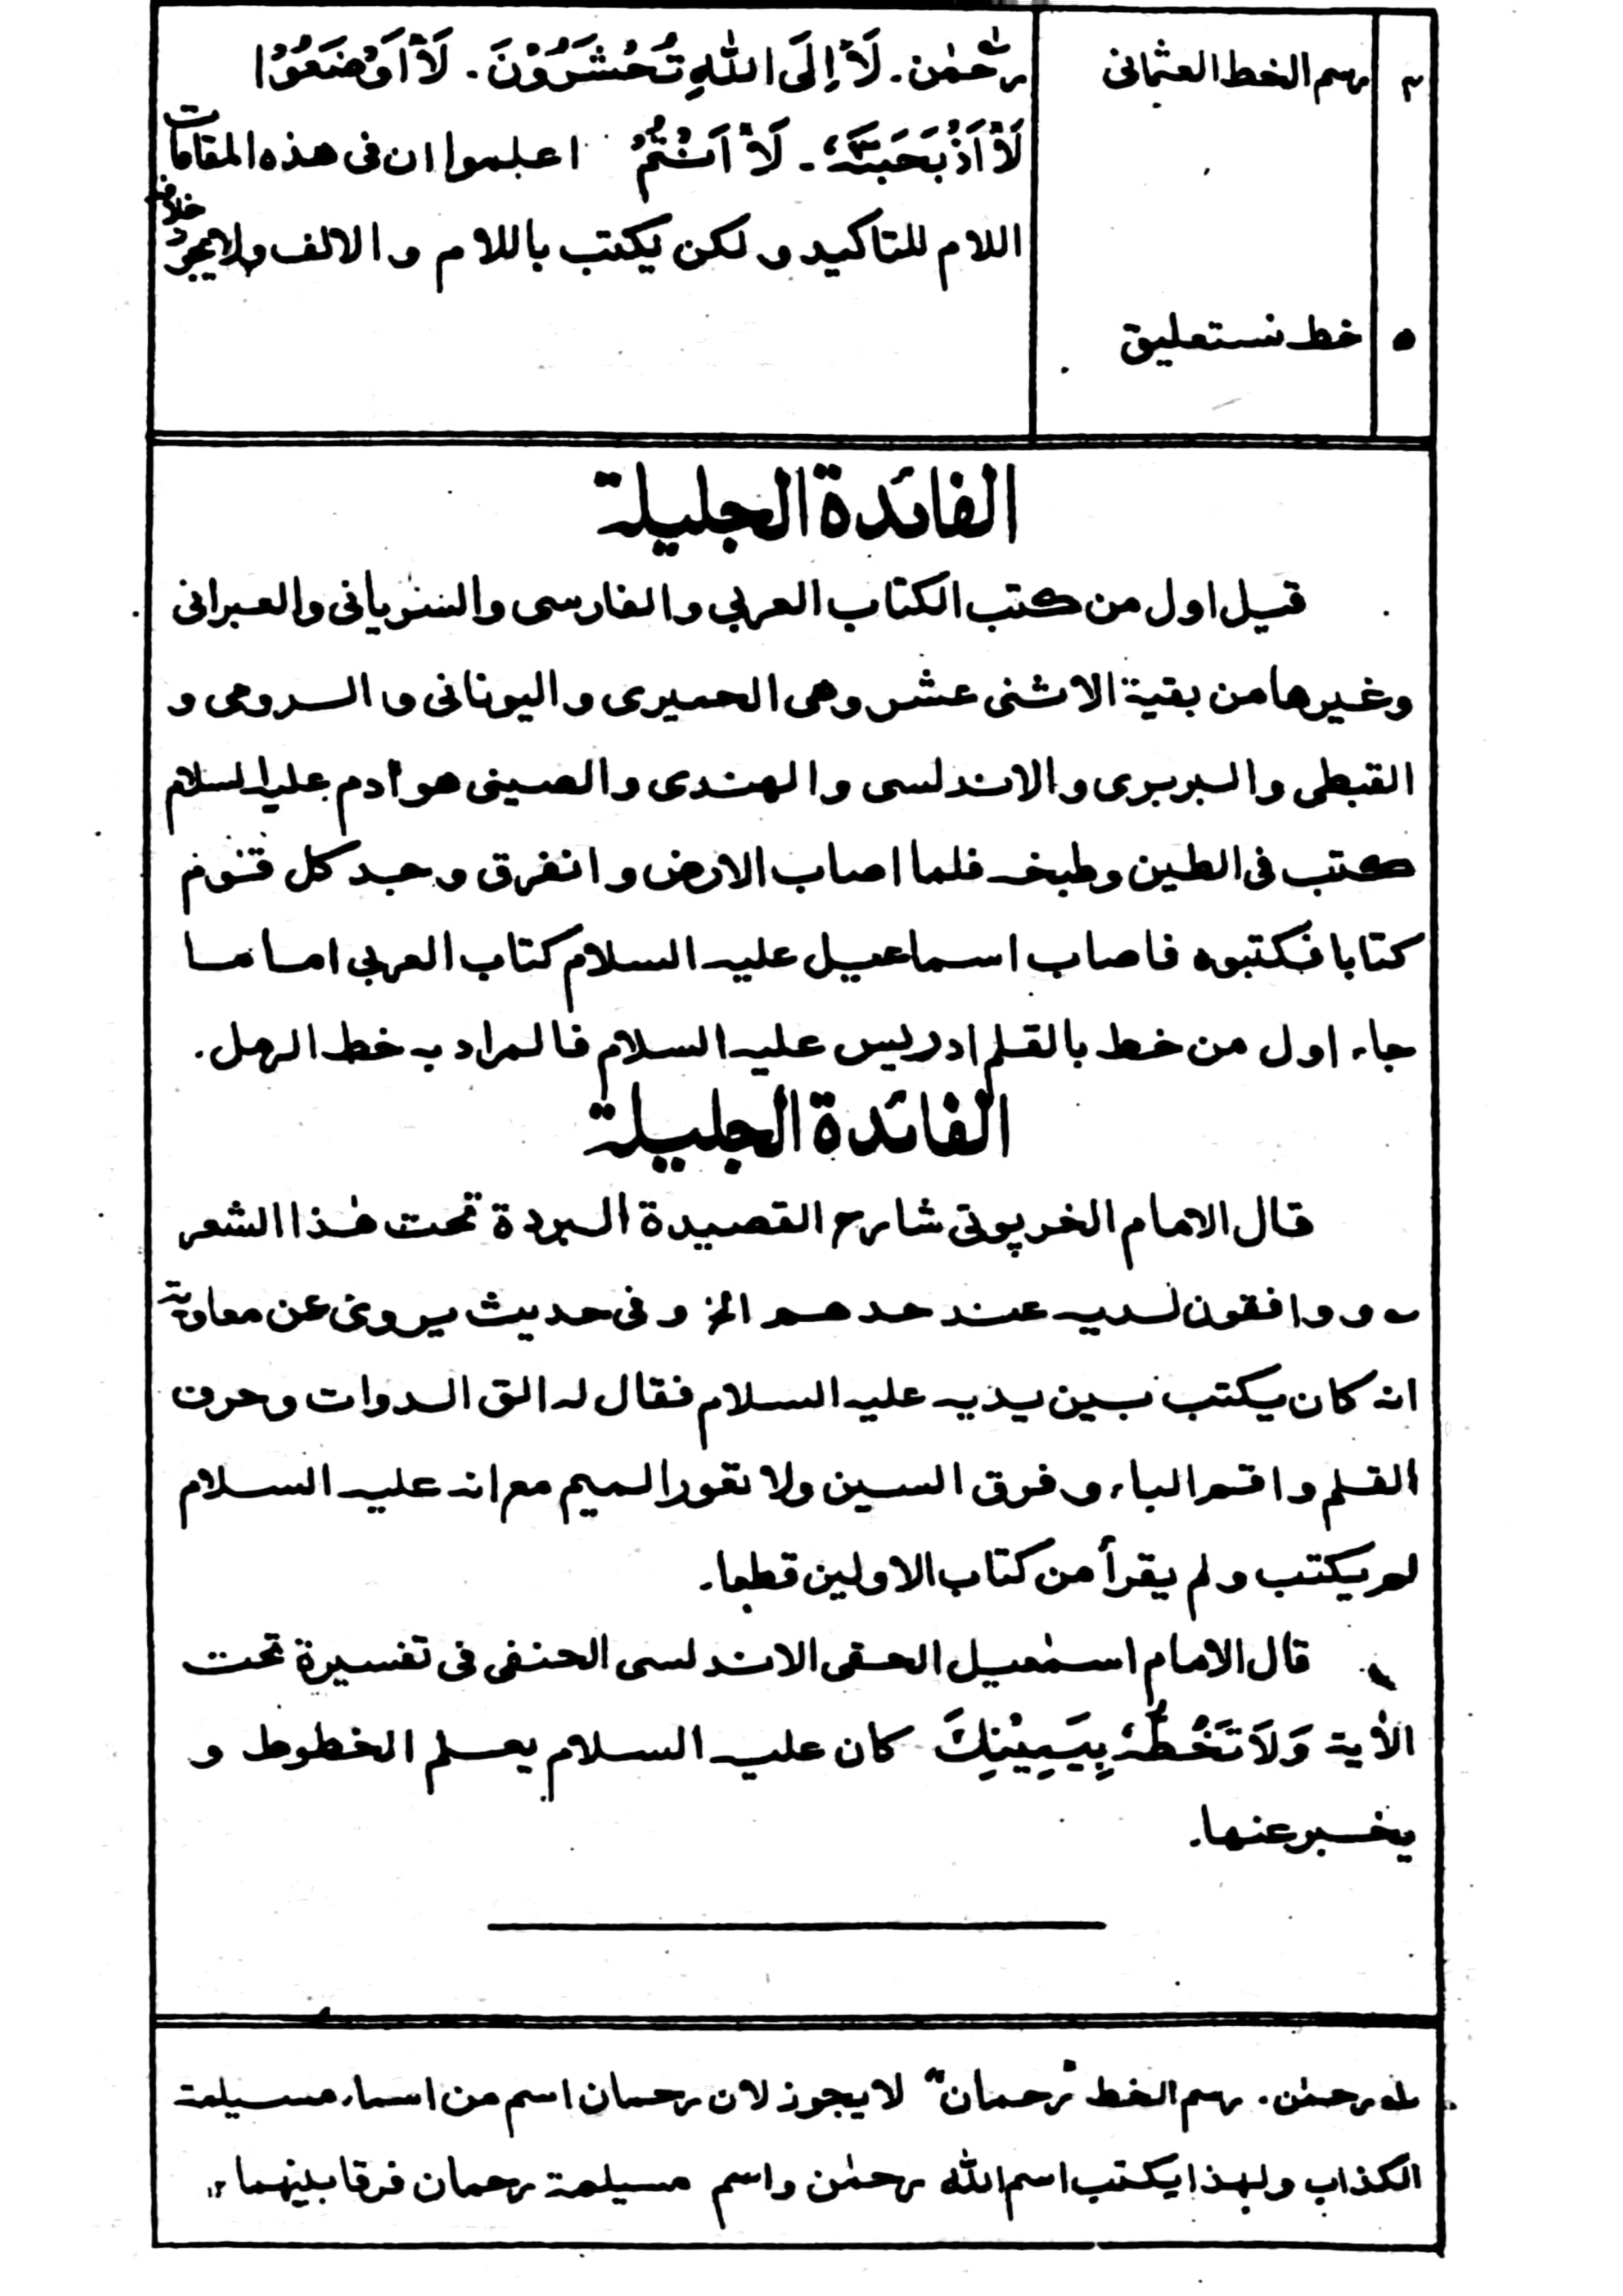 ۴ رسم الخط العثمانی رحمٰن۔ لَاْ اِلَی اللّٰهِ تُحْشَرُوْنَ۔ لَاْ اَوْضَعُوْا
لَاْ اَذْبَحَنَّهٗ۔ لَاْ اَنْتُمْ اعلموا ان فی هذه المقامات
اللام للتاکید و لکن یکتب باللام و الالف ولا یجوز خلافه
۵ خط نستعلیق
الفائدة الجلیلة
قیل اول من کتب الکتاب العربی والفارسی والسریانی والعبرانی
وغیرها من بقیة الاثنی عشر وهی الحمیری والیونانی والرومی و
القبطی والبربری والاندلسی والهندی والصینی هو اٰدم علیه السلام
کتب فی الطین وطبخه فلما اصاب الارض و انغرق وجد کل قوم
کتابا فکتبوه فاصاب اسماعیل علیه السلام کتاب العربی اما ما
جاء اول من خط بالقلم ادریس علیه السلام فالمراد به خط الرمل۔
الفائدة الجلیلة
قال الامام الخرپوتی شارح القصیدة البردة تحت هٰذا الشعر
؎ و واقفون لدیه عند حدهم الخ و فی حدیث یروی عن معاویة
انه کان یکتب بین یدیه علیه السلام فقال له الق الدوات وحرف
القلم و اقم الباء و فرق السین ولا تعور المیم مع انه علیه السلام
لم یکتب و لم یقرأ من کتاب الاولین قطعا۔
قال الامام اسمٰعیل الحقی الاندلسی الحنفی فی تفسیرة تحت
الاٰیة وَلَا تَخُطُّهٗ بِیَمِیْنِكَ کان علیه السلام یعلم الخطوط و
یخبر عنها۔
لہ رحمٰن۔ رسم الخط "رحمان" لا یجوز لان رحمان اسم من اسماء مسیلمة
الکذاب ولهذا یکتب اسم اللّٰه رحمٰن واسم مسیلمة رحمان فرقا بینهما ۱۲